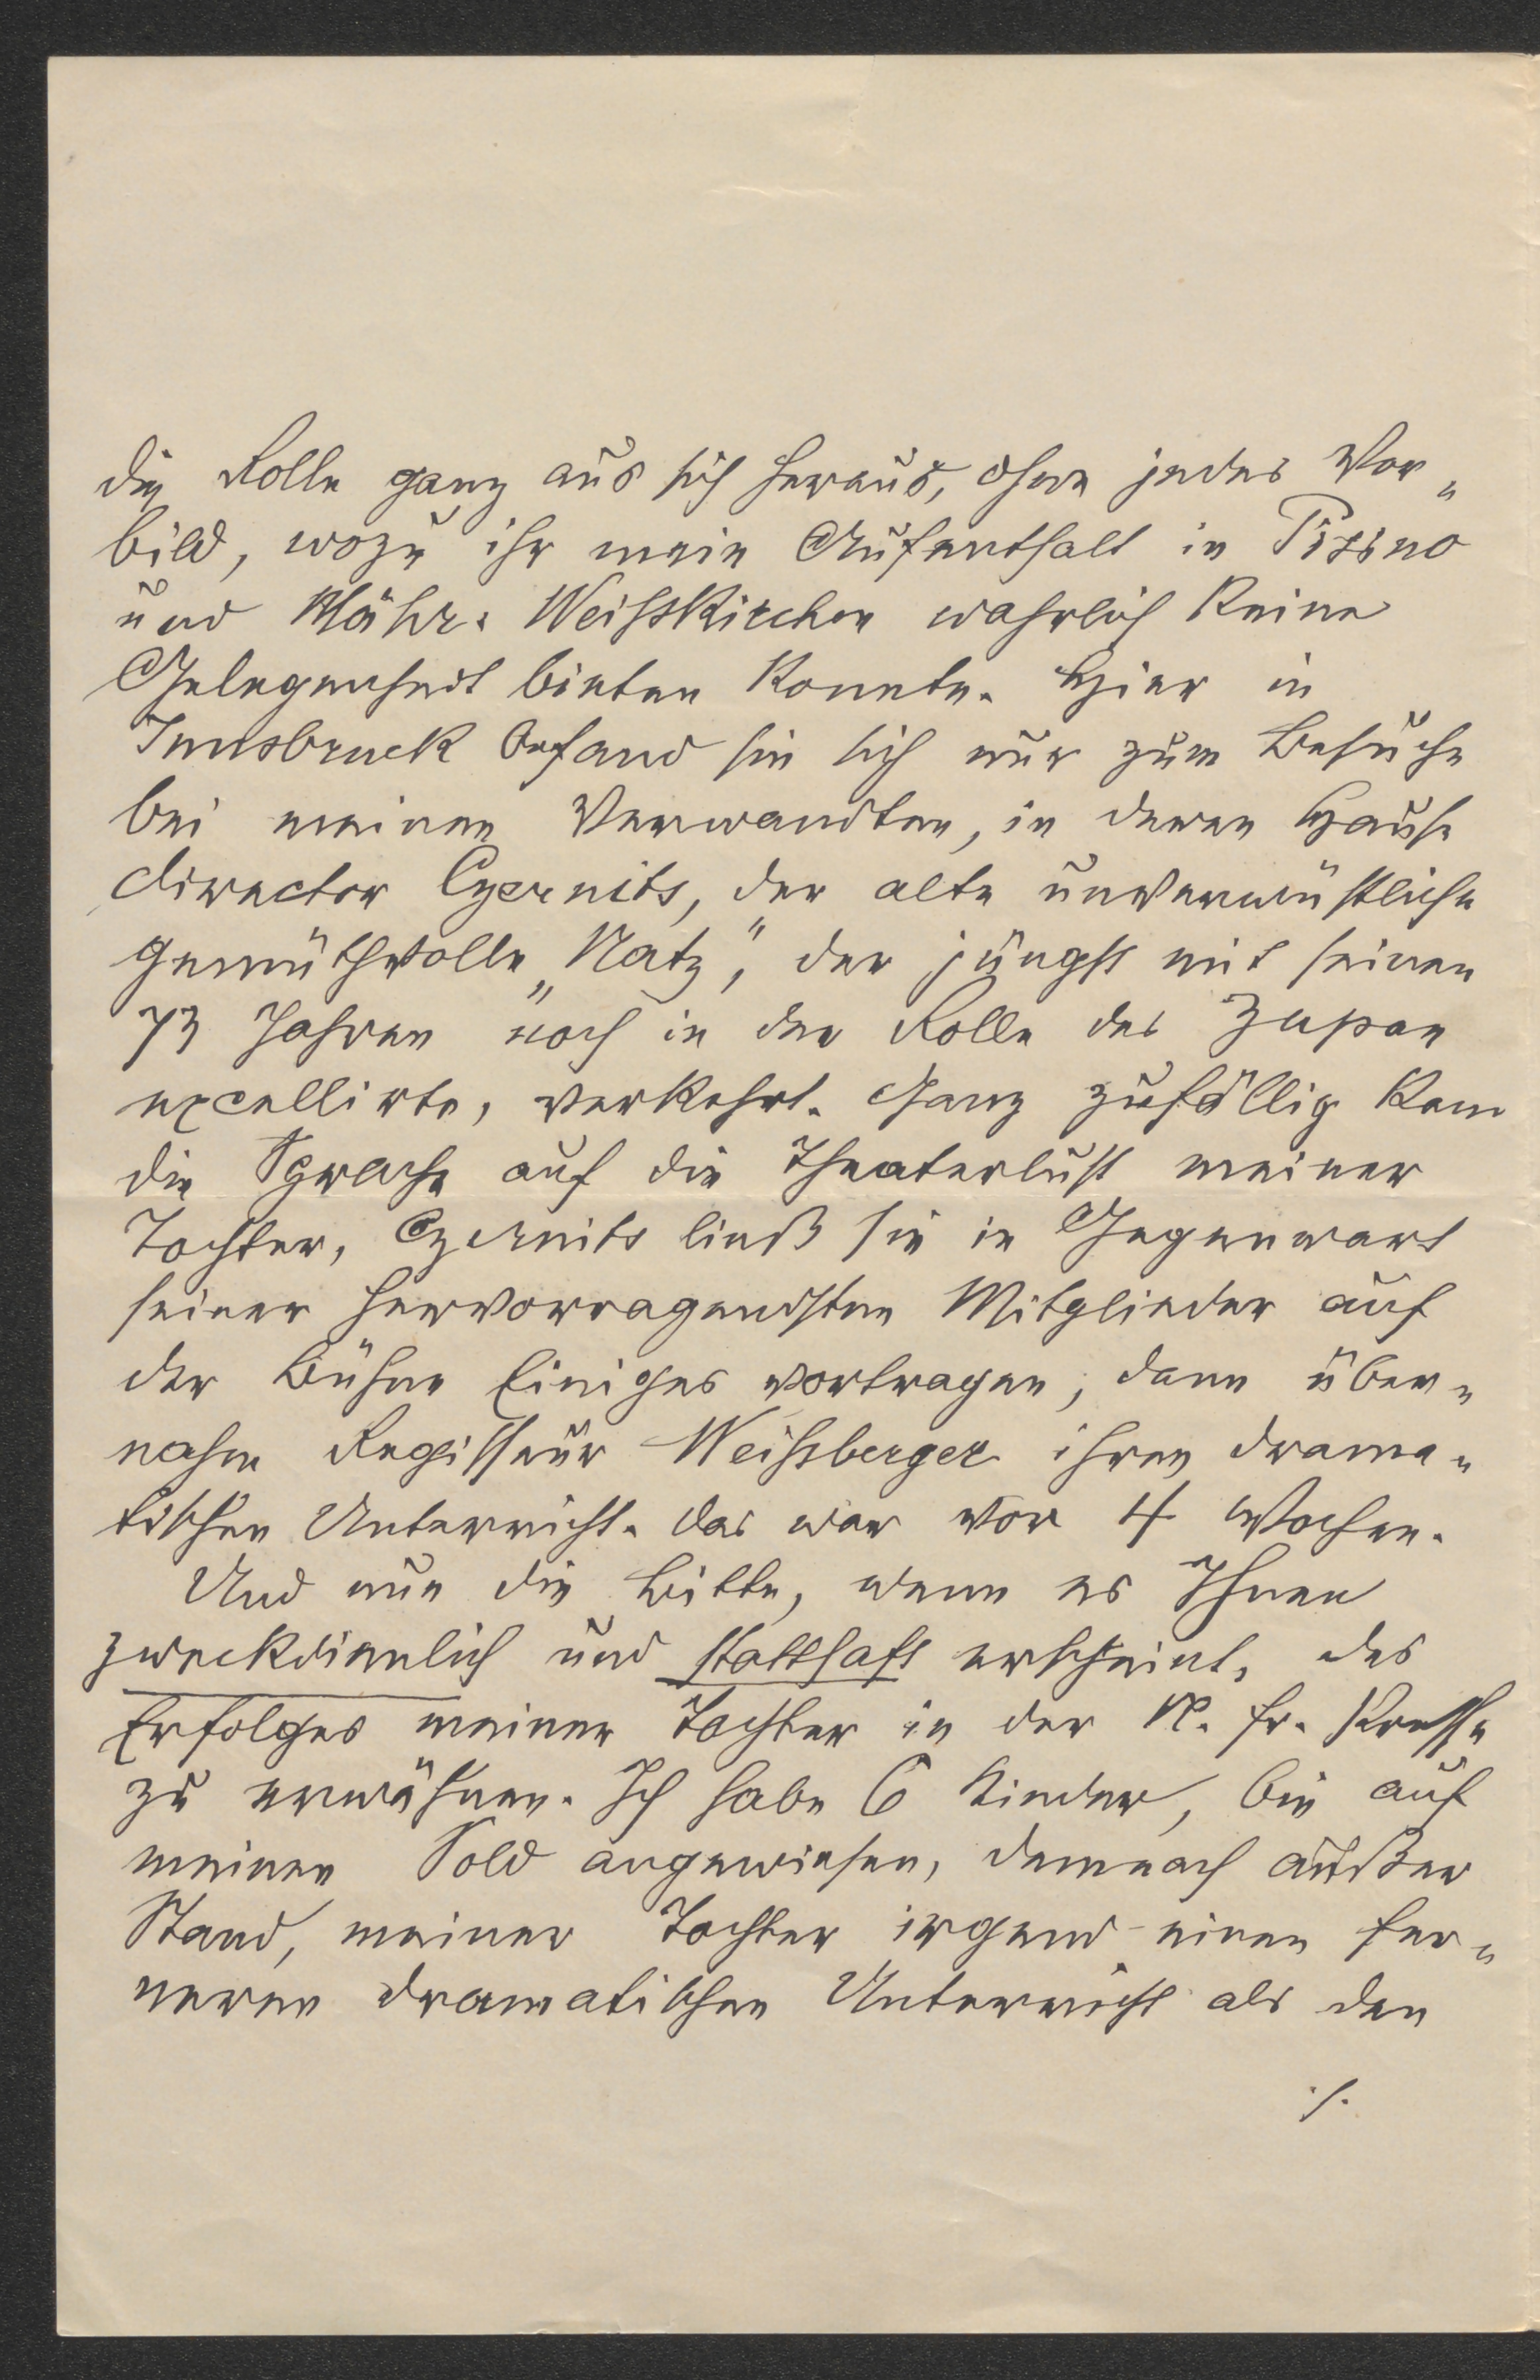 die Rolle ganz aus sich heraus, ohne jedes Vor„
bild, wozu ihr mein Aufenthalt in Pisino
und Mähr. Weisskirchen wahrlich keine
Gelegenheit bieten konnte. Hier in
Innsbruck befand sie sich nur zum Besuche
bei meinen Verwandten, in deren Hause
Director Czernits, der alte unverwüstliche
gemüthvolle „Natz", der jüngst mit seinen
73 Jahren noch in der Rolle des Zupan
excellirte, verkehrt. Ganz zufällig kam
die Sprache auf die Theaterlust meiner
Tochter, Czernits ließ sie in Gegenwart
seiner hervorragendsten Mitglieder auf
der Bühne Einiges vortragen, dann über„
nahm Regisseur Weissberger ihren drama„
tischen Unterricht. Das war vor 4 Wochen.
Und nun die Bitte, wenn es Ihnen
zweckdienlich und statthaft erscheint, des
Erfolges meiner Tochter in der N. fr. Presse
zu erwähnen. Ich habe 6 Kinder, bin auf
meinen Sold angewiesen, demnach außer
Stand, meiner Tochter irgend einen fer„
neren dramatischen Unterricht als den
./.